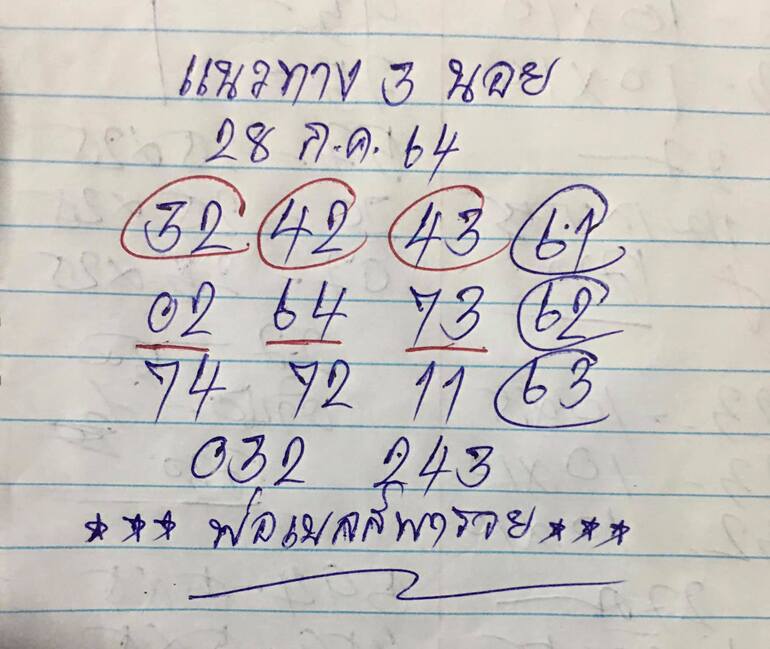 แนวทาง 3 นอย
28 ก.ค. 64
32 42 43 61
02 64 73 62
74 72 11 63
032 243
*** พ่อเบลล์พารวย ***